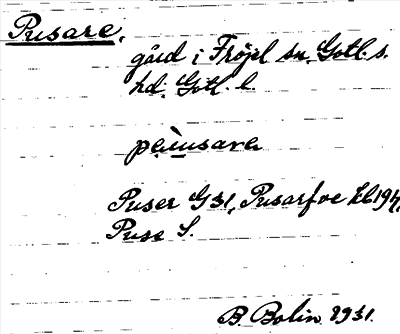 Pusare,
gård i Fröjel sn. Gotl. s.
hd. Gotl. l.
Puser G 31, Pusarfve
Puse S.
B. Bolin 1931.